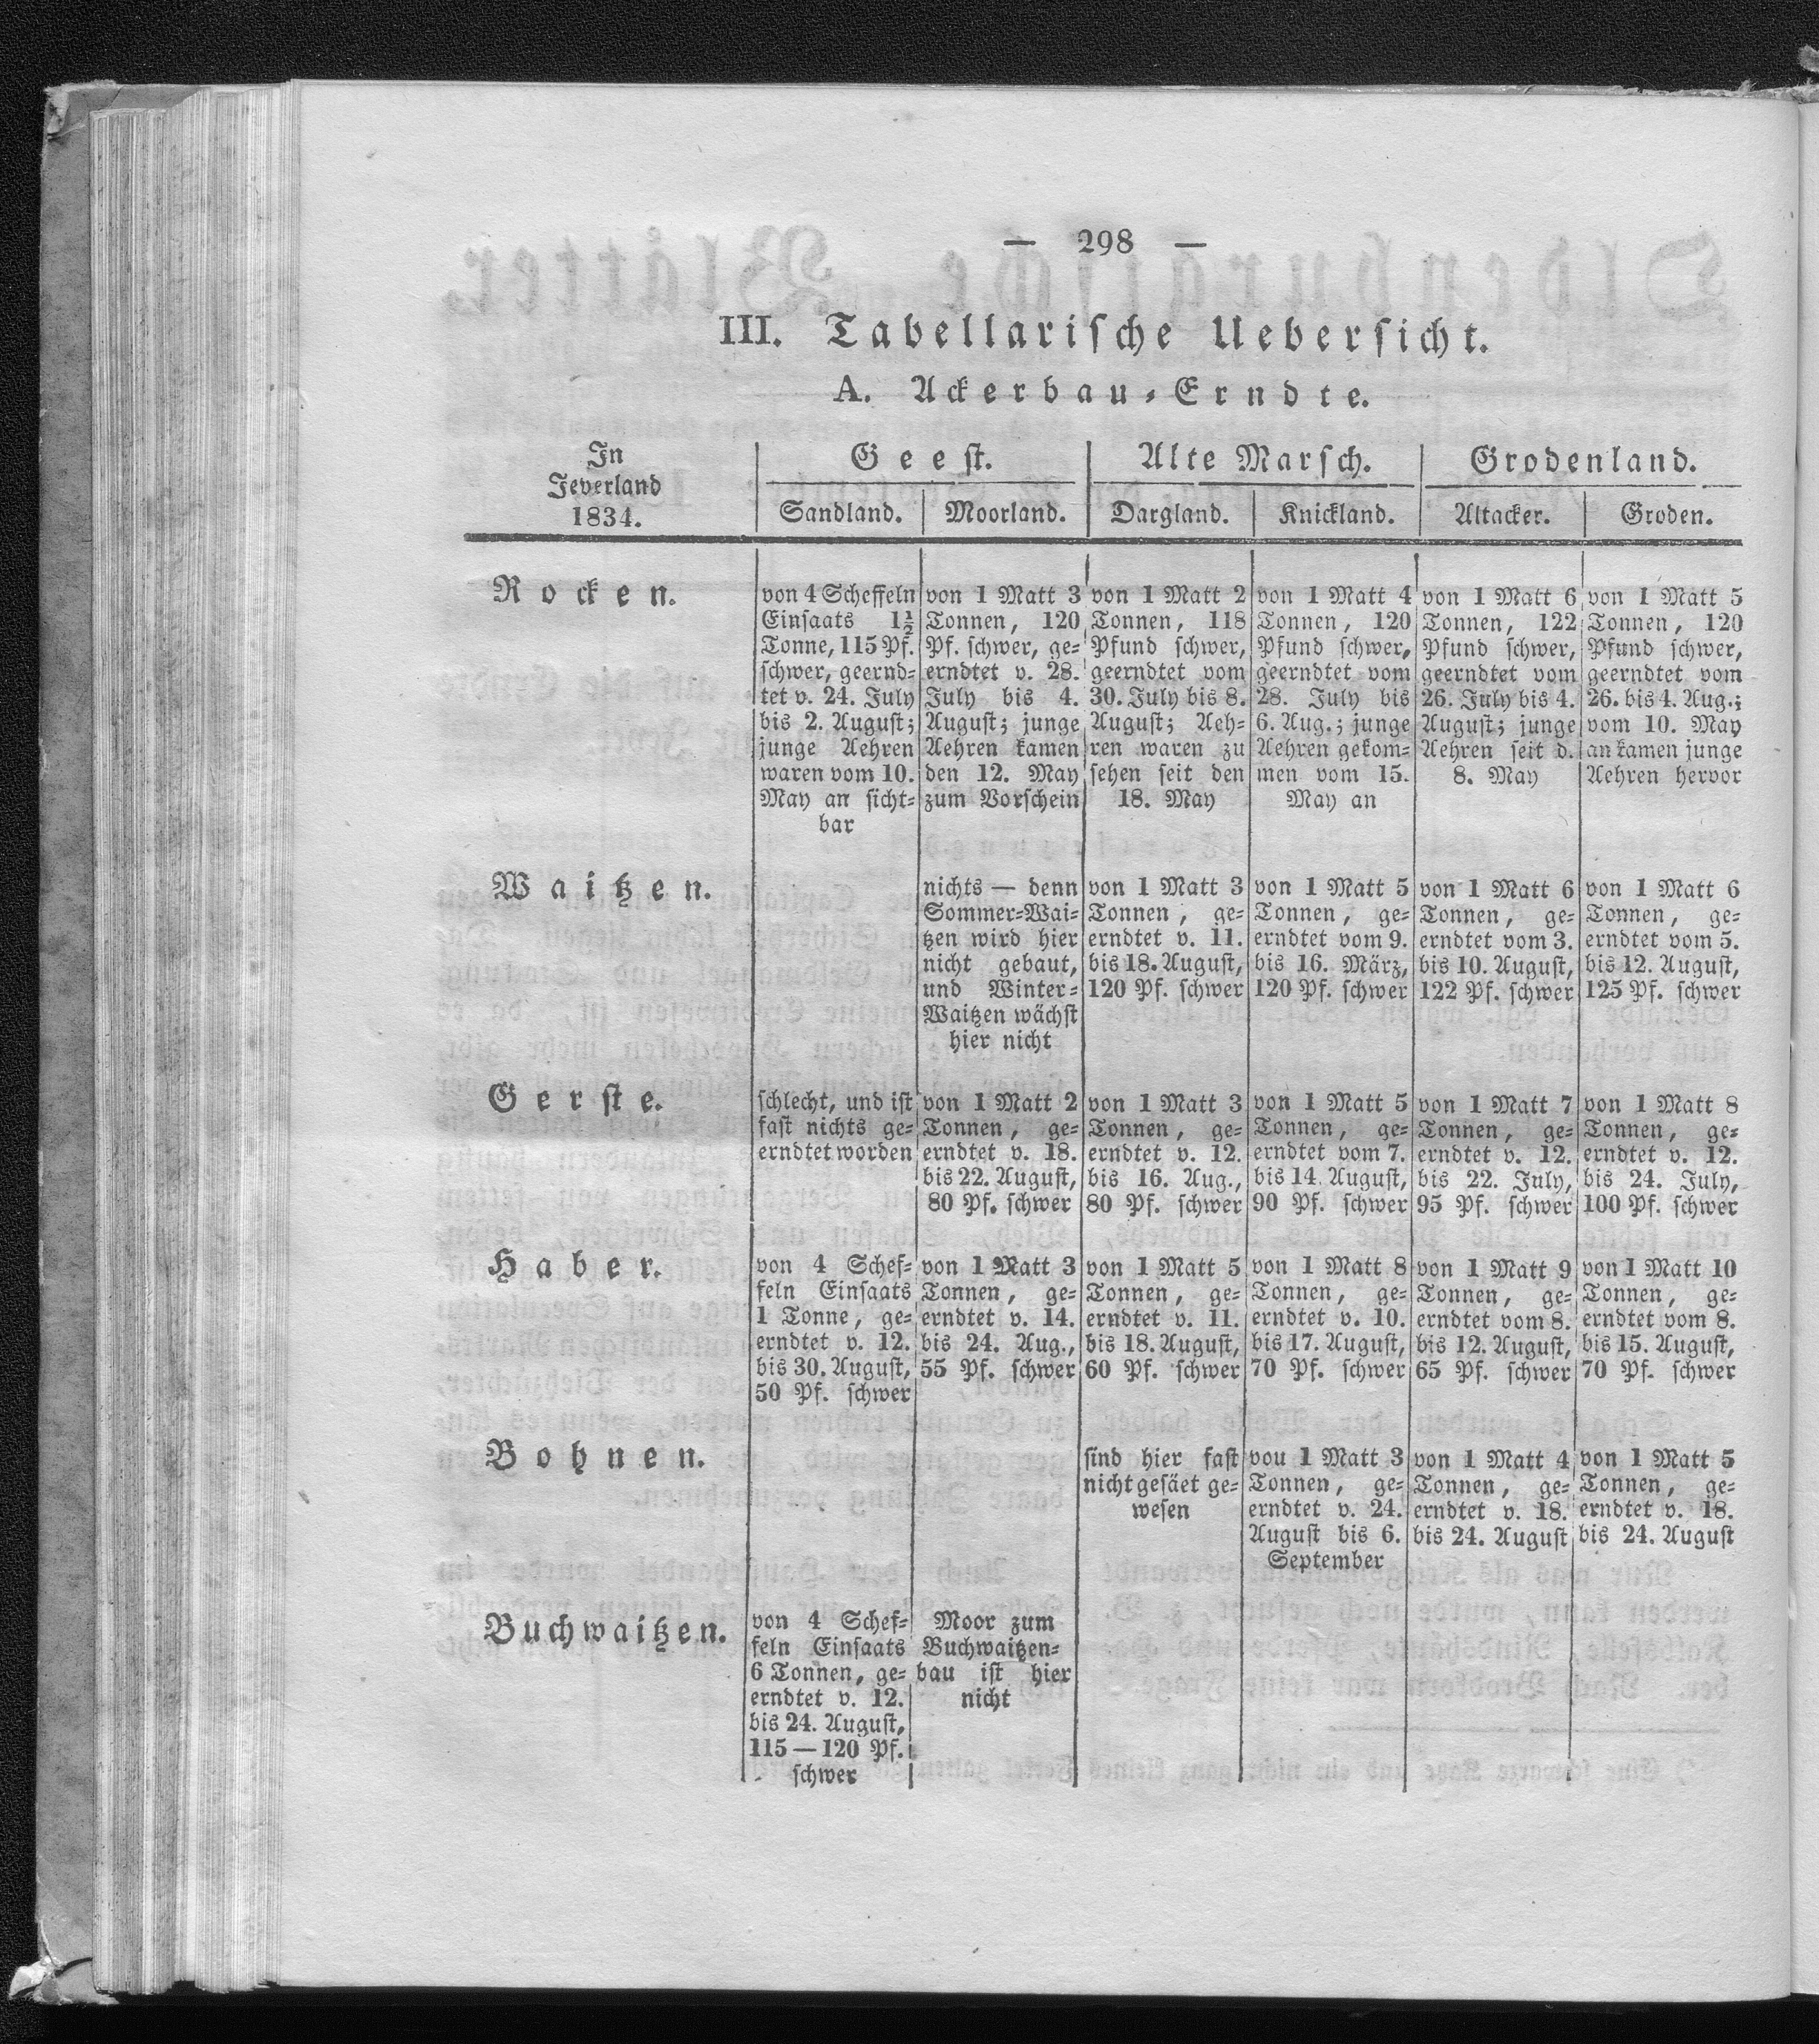 — 298 —
III. Tabellarische Uebersicht.
A. Ackerbau-Erndte.
In
Jeverland
1834.
Geest.
Alte Marsch.
Grodenland.
Sandland.
Moorland.
Dargland.
Knickland.
Altacker.
Groden.
Rocken.
von 4 Scheffeln
Einsaats 1½
Tonne, 115 Pf.
schwer, geernd-
tet v. 24. July
bis 2. August;
junge Aehren
waren vom 10.
May an sicht-
bar
von 1 Matt 3
Tonnen, 120
Pf. schwer, ge-
erndtet v. 28.
July bis 4.
August; junge
Aehren kamen
den 12. May
zum Vorschein
von 1 Matt 2
Tonnen, 118
Pfund schwer,
geerndtet vom
30. July bis 8.
August; Aeh-
ren waren zu
sehen seit den
18. May
von 1 Matt 4
Tonnen, 120
Pfund schwer,
geerndtet vom
28. July bis
6. Aug.; junge
Aehren gekom-
men vom 15.
May an
von 1 Matt 6
Tonnen, 122
Pfund schwer,
geerndtet vom
26. July bis 4.
August; junge
Aehren seit d.
8. May
von 1 Matt 5
Tonnen, 120
Pfund schwer,
geerndtet vom
26. bis 4. Aug.;
vom 10. May
an kamen junge
Aehren hervor
Waitzen.
nichts — denn
Sommer-Wai-
tzen wird hier
nicht gebaut,
und Winter-
Waitzen wächst
hier nicht
von 1 Matt 3
Tonnen, ge-
erndtet v. 11.
bis 18. August,
120 Pf. schwer
von 1 Matt 5
Tonnen, ge-
erndtet vom 9.
bis 16. März,
120 Pf. schwer
von 1 Matt 6
Tonnen, ge-
erndtet vom 3.
bis 10. August,
122 Pf. schwer
von 1 Matt 6
Tonnen, ge-
erndtet vom 5.
bis 12. August,
125 Pf. schwer
Gerste.
schlecht, und ist
fast nichts ge-
erndtet worden
von 1 Matt 2
Tonnen, ge-
erndtet v. 18.
bis 22. August,
80 Pf. schwer
von 1 Matt 3
Tonnen, ge-
erndtet v. 12.
bis 16. Aug.,
80 Pf. schwer
von 1 Matt 5
Tonnen, ge-
erndtet vom 7.
bis 14. August,
90 Pf. schwer
von 1 Matt 7
Tonnen, ge-
erndtet v. 12.
bis 22. July,
95 Pf. schwer
von 1 Matt 8
Tonnen, ge-
erndtet v. 12.
bis 24. July,
100 Pf. schwer
Haber.
von 4 Schef-
feln Einsaats
1 Tonne, ge-
erndtet v. 12.
bis 30. August,
50 Pf. schwer
von 1 Matt 3
Tonnen, ge-
erndtet v. 14.
bis 24. Aug.,
55 Pf. schwer
von 1 Matt 5
Tonnen, ge-
erndtet v. 11.
bis 18. August,
60 Pf. schwer
von 1 Matt 8
Tonnen, ge-
erndtet v. 10.
bis 17. August,
70 Pf. schwer
von 1 Matt 9
Tonnen, ge-
erndtet vom 8.
bis 12. August,
65 Pf. schwer
von 1 Matt 10
Tonnen, ge-
erndtet vom 8.
bis 15. August,
70 Pf. schwer
Bohnen.
sind hier fast
nicht gesäet ge-
wesen
vou 1 Matt 3
Tonnen, ge-
erndtet v. 24.
August bis 6.
September
von 1 Matt 4
Tonnen, ge-
erndtet v. 18.
bis 24. August
von 1 Matt 5
Tonnen, ge-
erndtet v. 18.
bis 24. August
Buchwaitzen.
von 4 Schef-
feln Einsaats
6 Tonnen, ge-
erndtet v. 12.
bis 24. August,
115 — 120 Pf.
schwer
Moor zum
Buchwaitzen-
bau ist hier
nicht